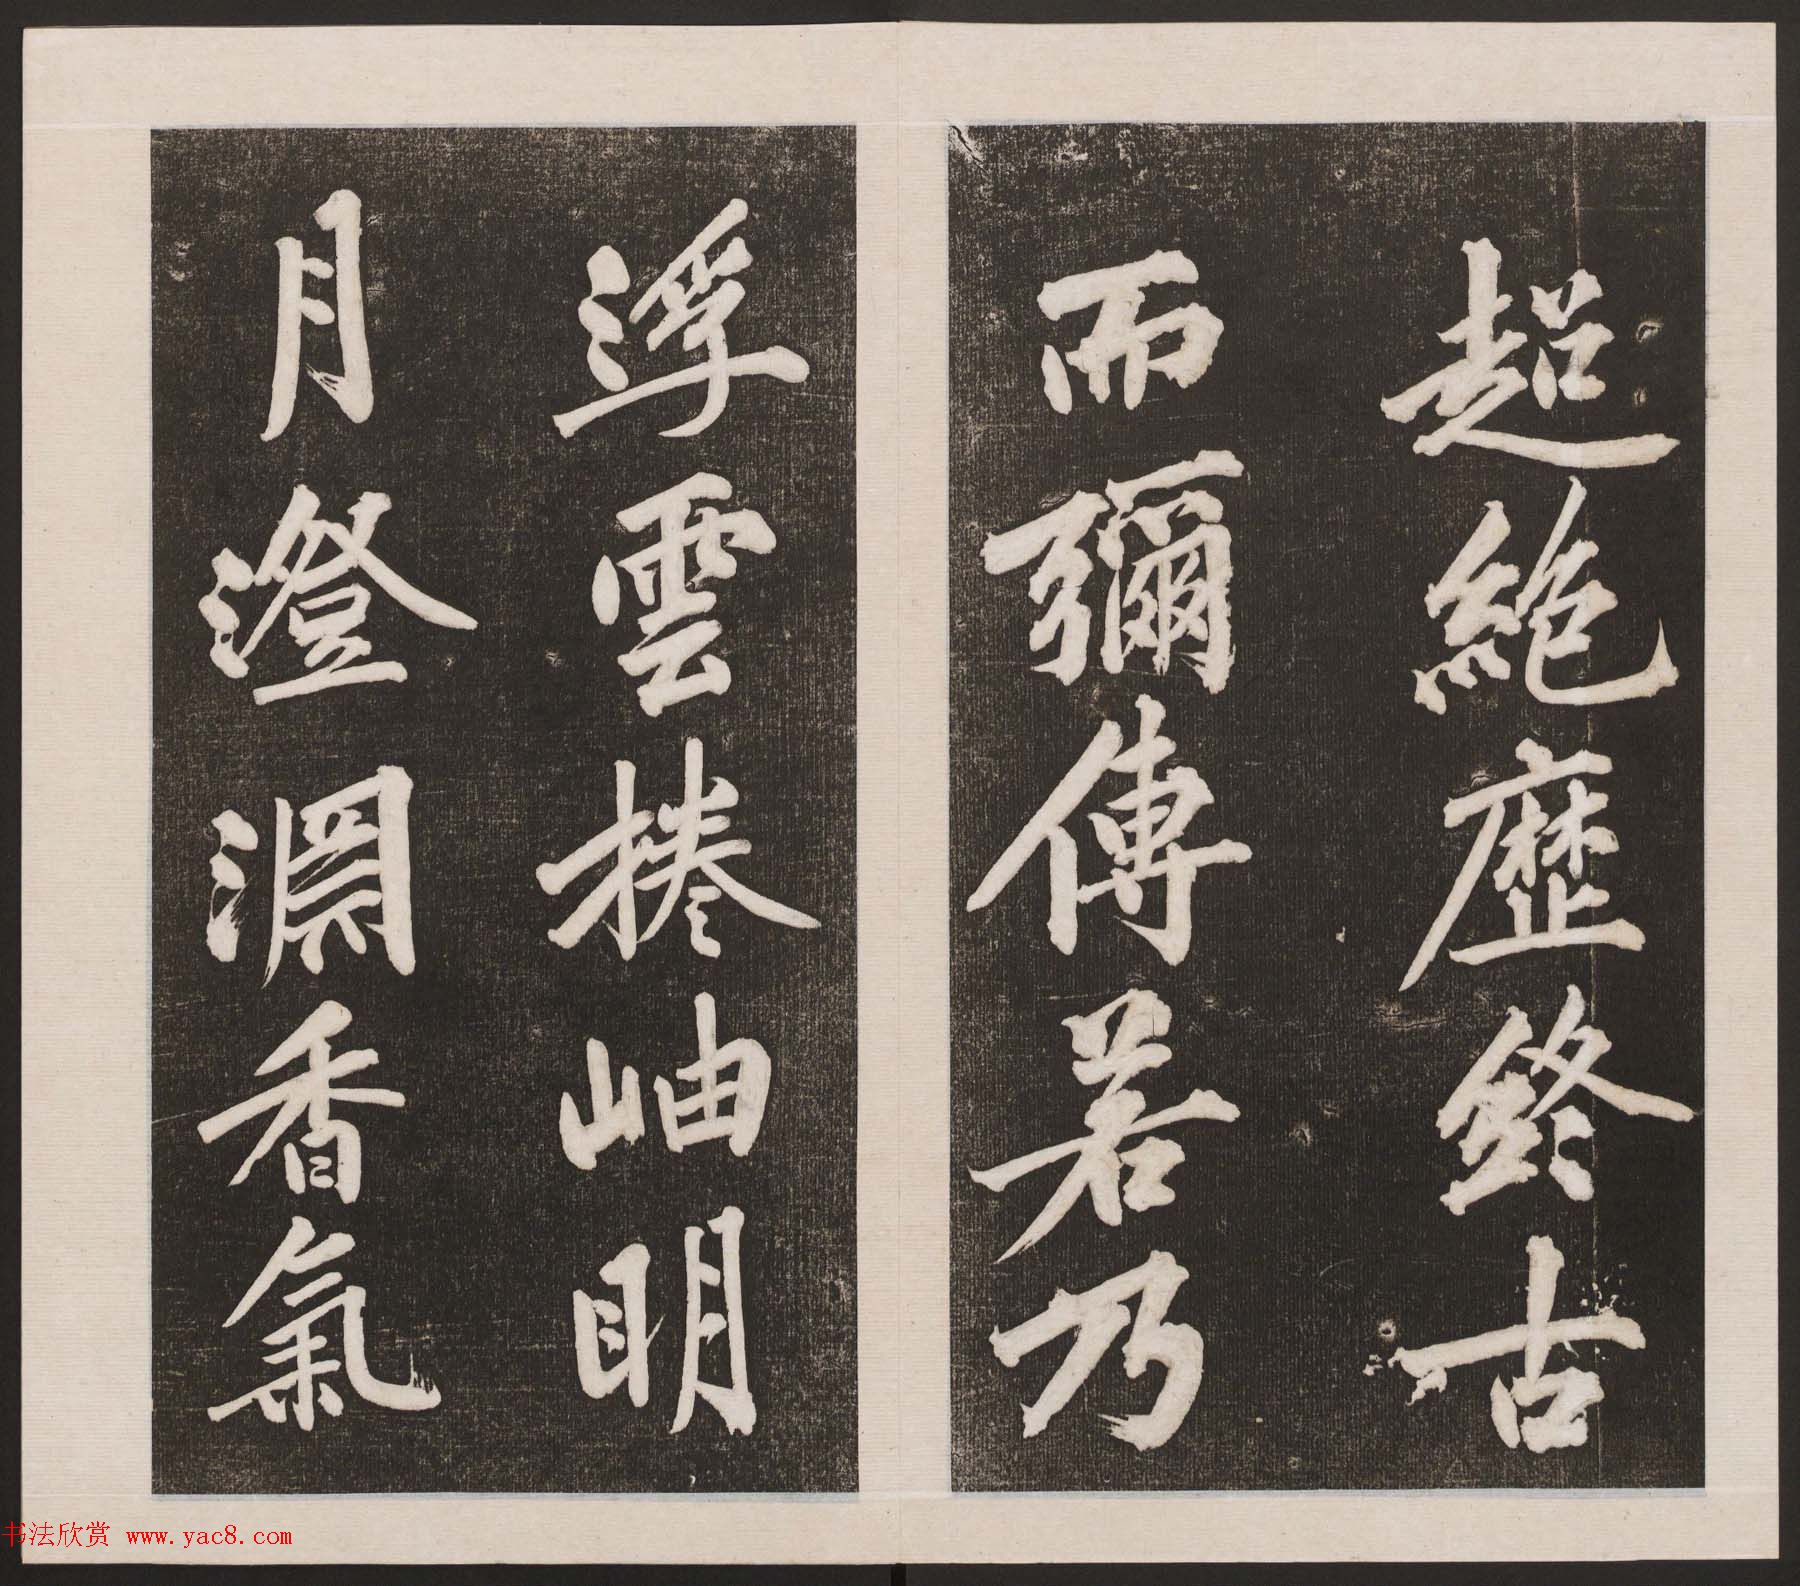 超絶歷終古
而彌傳若乃
浮雲捲岫明
月澄淵香氣
书法欣赏 www.yac8.com